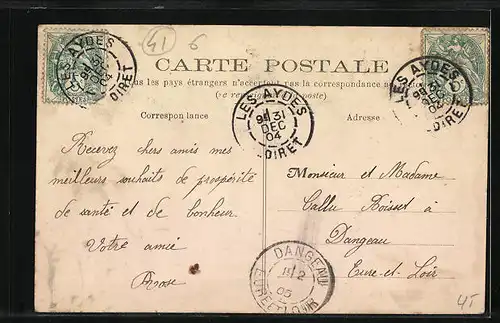 41 6
CARTE POSTALE
us les pays étrangers n'acceptent pas la correspondance au
Correspondance
Adresse
LES AYDES
31
DEC
04
LOIRET
LES AYDES
9E 31
DEC
04
LOIRET
LES AYDES
04
LOIRET
Recevez chers amis mes
meilleurs souhaits de prospérité
de santé et de bonheur
Votre amie
Rose
Monsieur et Madame
Callu Boisset à
Dangeau
Eure-et-Loir
DANGEAU
2
05
EURE-ET-LOIR
45